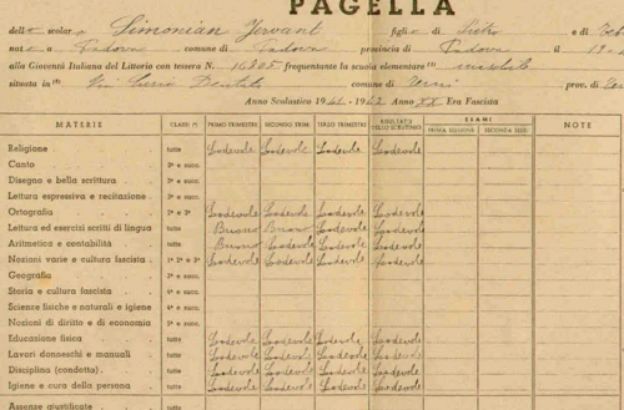 PAGELLA
dell scolar Simonian Jervant figli di Pietro e di
nat a Padova comune di Padova provincia di Padova il
alla Gioventù Italiana del Littorio con tessera N. frequentante la scuola elementare (1)
situata in (2) Via Curio Dentato comune di Terni prov. di
Anno Scolastico 1941 - 1942 Anno XX Era Fascista
MATERIE CLASSI (*) PRIMO TRIMESTRE SECONDO TRIM. TERZO TRIMESTRE RISULTATO DELLO SCRUTINIO ESAMI NOTE
PRIMA SESSIONE SECONDA SESS.
Religione tutte Lodevole Lodevole Lodevole Lodevole
Canto 2ª e succ.
Disegno e bella scrittura 2ª e succ.
Lettura espressiva e recitazione 2ª e succ.
Ortografia 1ª e 2ª Lodevole Lodevole Lodevole Lodevole
Lettura ed esercizi scritti di lingua tutte Buono Buono Lodevole Lodevole
Aritmetica e contabilità tutte Buono Lodevole Lodevole Lodevole
Nozioni varie e cultura fascista 1ª 2ª e 3ª Lodevole Lodevole Lodevole Lodevole
Geografia 3ª e succ.
Storia e cultura fascista 4ª e succ.
Scienze fisiche e naturali e igiene 4ª e succ.
Nozioni di diritto e di economia 5ª e succ.
Educazione fisica tutte Lodevole Lodevole Lodevole Lodevole
Lavori donneschi e manuali tutte Lodevole Lodevole Lodevole Lodevole
Disciplina (condotta) tutte Lodevole Lodevole Lodevole Lodevole
Igiene e cura della persona tutte Lodevole Lodevole Lodevole Lodevole
Assenze giustificate tutte